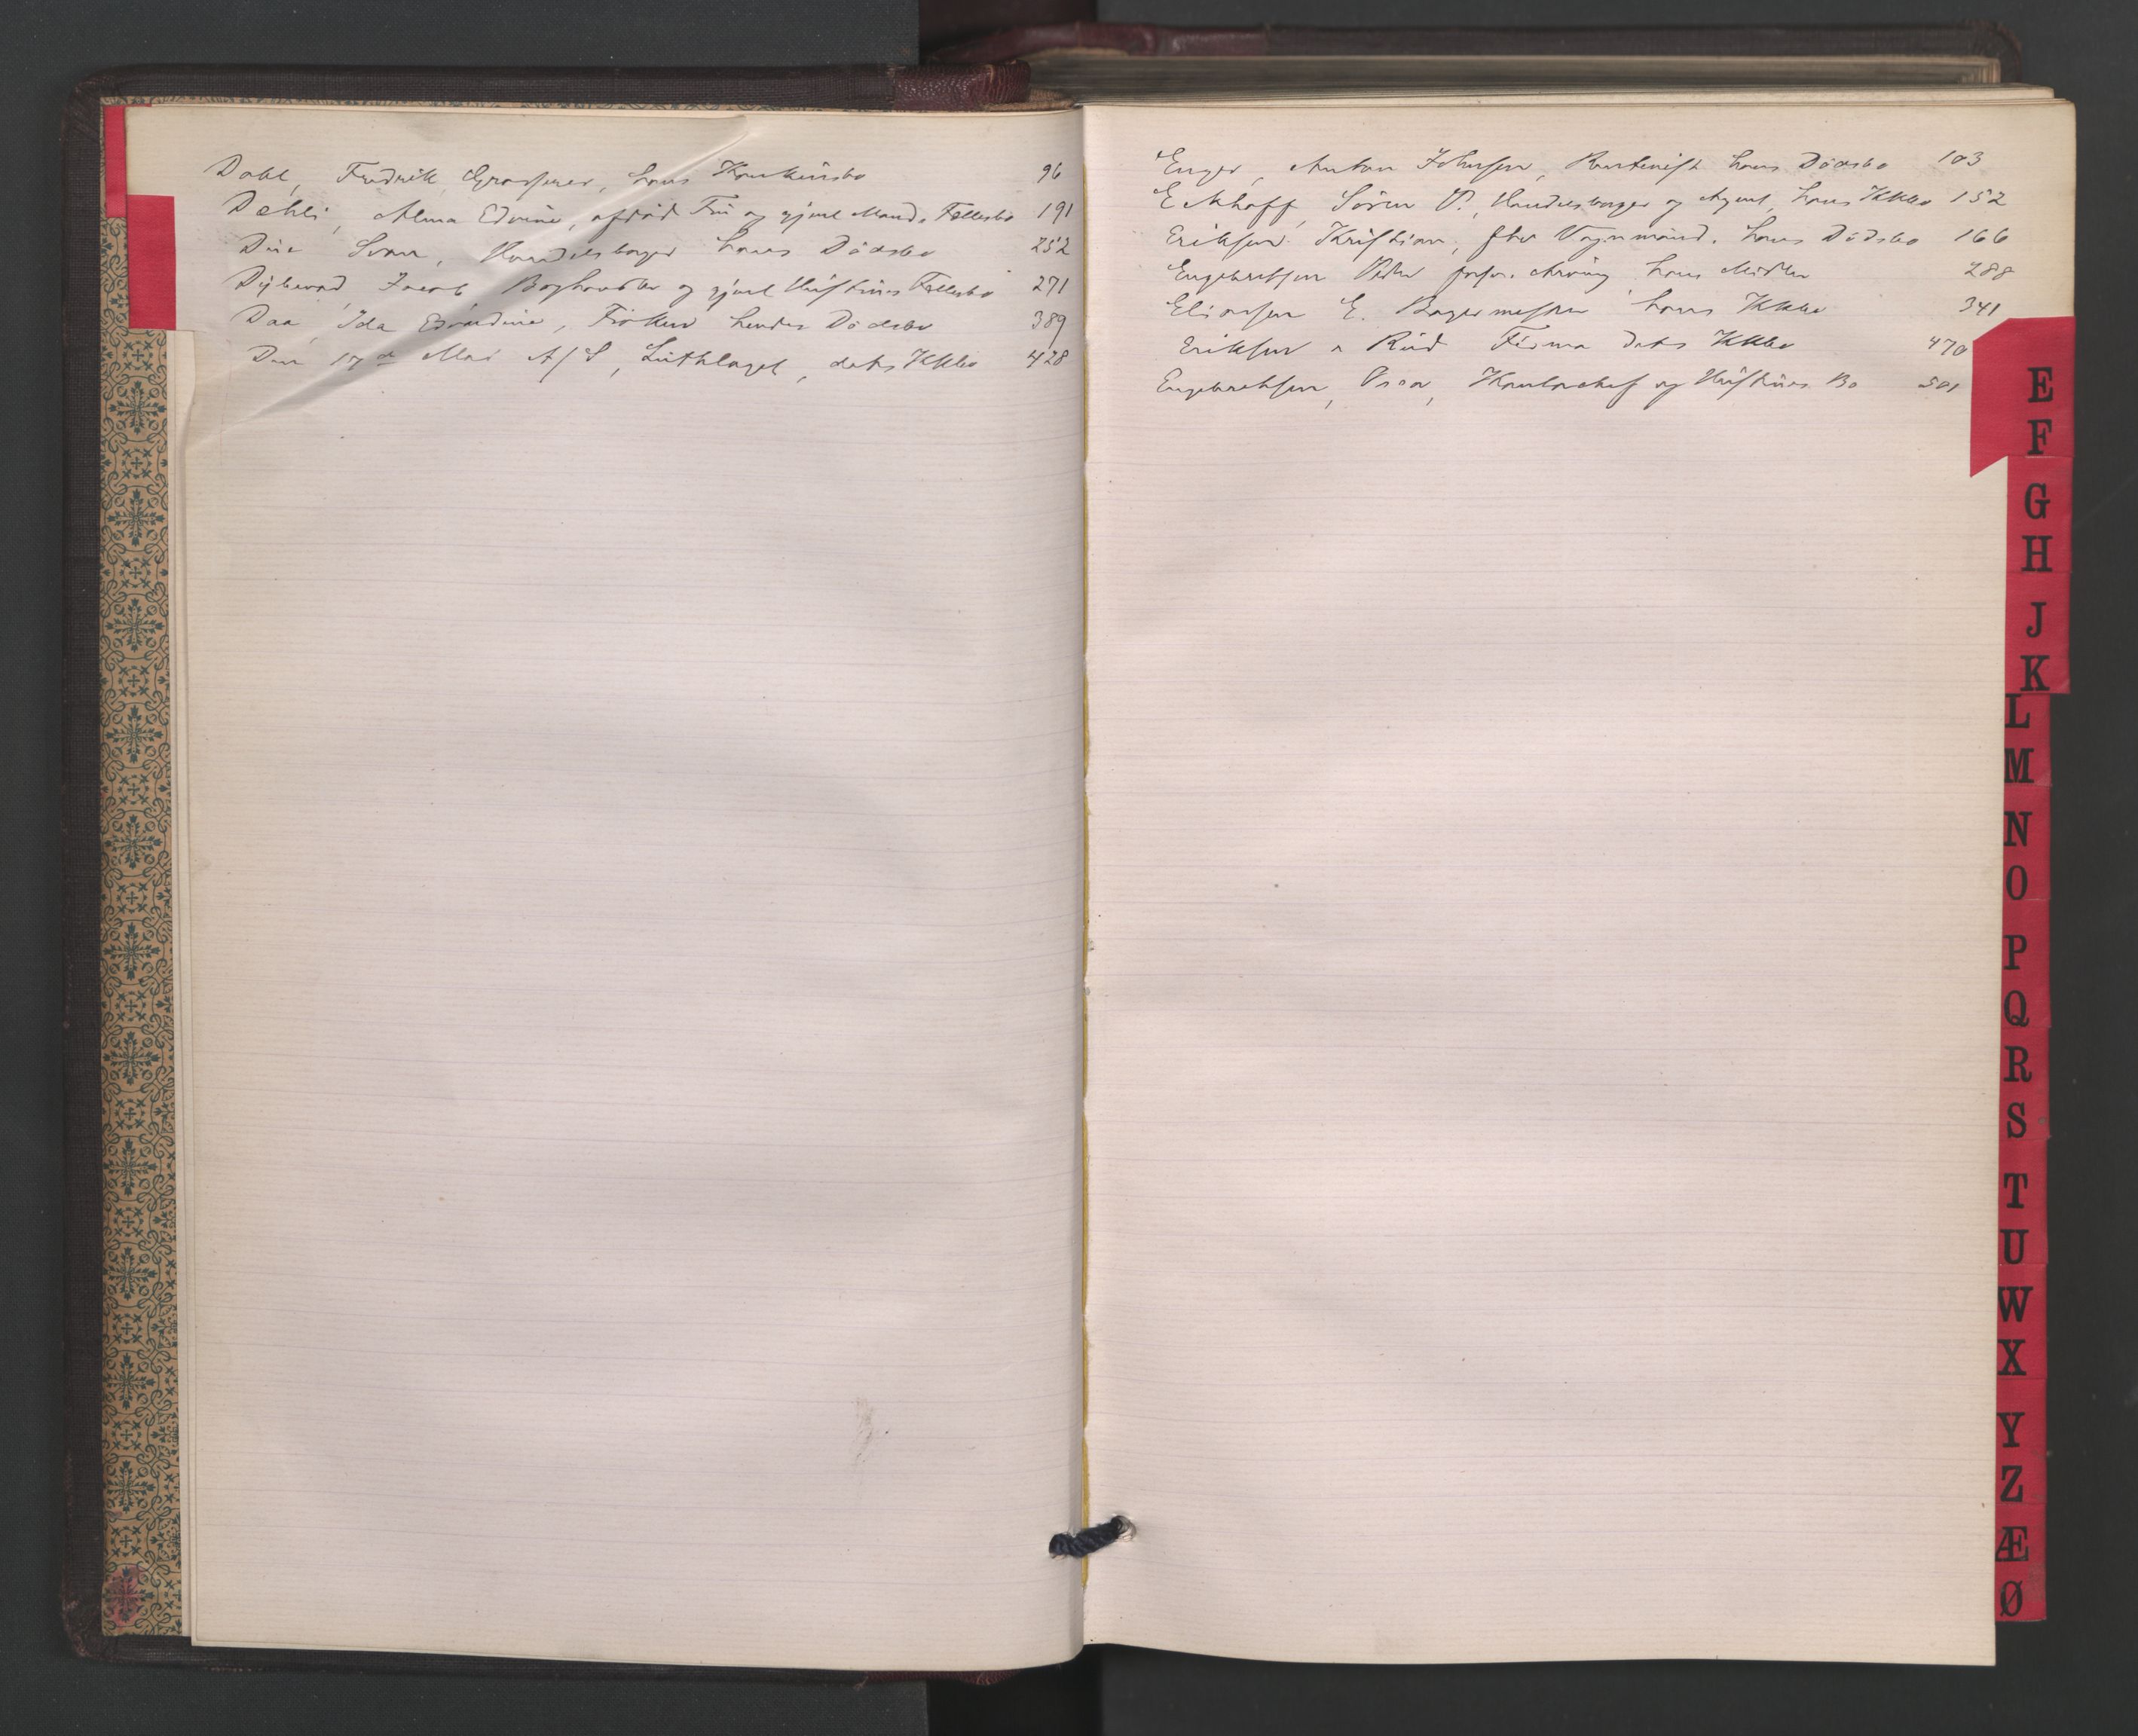 Dahl, Fredrik, Grosserer, hans Konkursbo 96
Dehli, Alma Edvine, afdød Frú og gjenl. Mands Fællesbo 191
Due Svan, Handelsborger hans Dødsbo 252
Dybwad, Jacob, Boghandler og gjenl Hústrúes Fællesbo 271
Daa, Ida Edvardine, Frøken hendes Dødsbo 389
Den 17de Mai A/S, Lútlaget, dets KKbo 428
Enger, Anton Johnsen, hans Dødsbo 103
Eckhoff, Sören P., Handelsborger og Agent, hans KKbo 152
Eriksen, Kristian, fhv Vognmand. hans Dødsbo 166
Engebretsen Peder hans Midler 288
Eliassen E. Bagermester hans KKbo 341
Eriksen & Rúd Firma dets KKbo 470
Engebretsen, Oscar, Kontorchef og Hústrúes Bo 501
E
F
G
H
J
K
L
M
N
O
P
Q
R
S
T
U
W
X
Y
Z
Æ
Ø